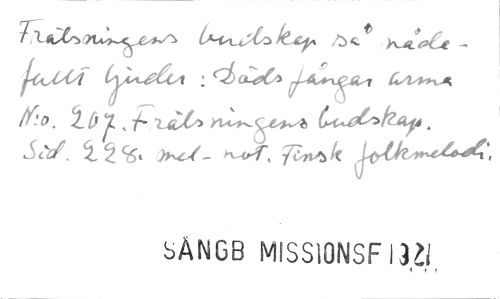 Frälsningens budskap så nåde-
fullt ljuder: Döds fångar arma
N:o. 207. Frälsningens budskap.
Sid. 228. mel-not. Finsk folkmelodi.
SÅNGB MISSIONSF 1921